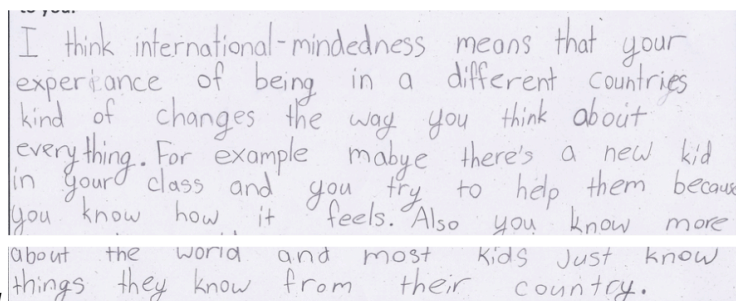 to you.
I think international-mindedness means that your
experiance of being in a different countries
kind of changes the way you think about
everything. For example mabye there's a new kid
in your class and you try to help them because
you know how it feels. Also you know more
about the world and most kids just know
things they know from their country.